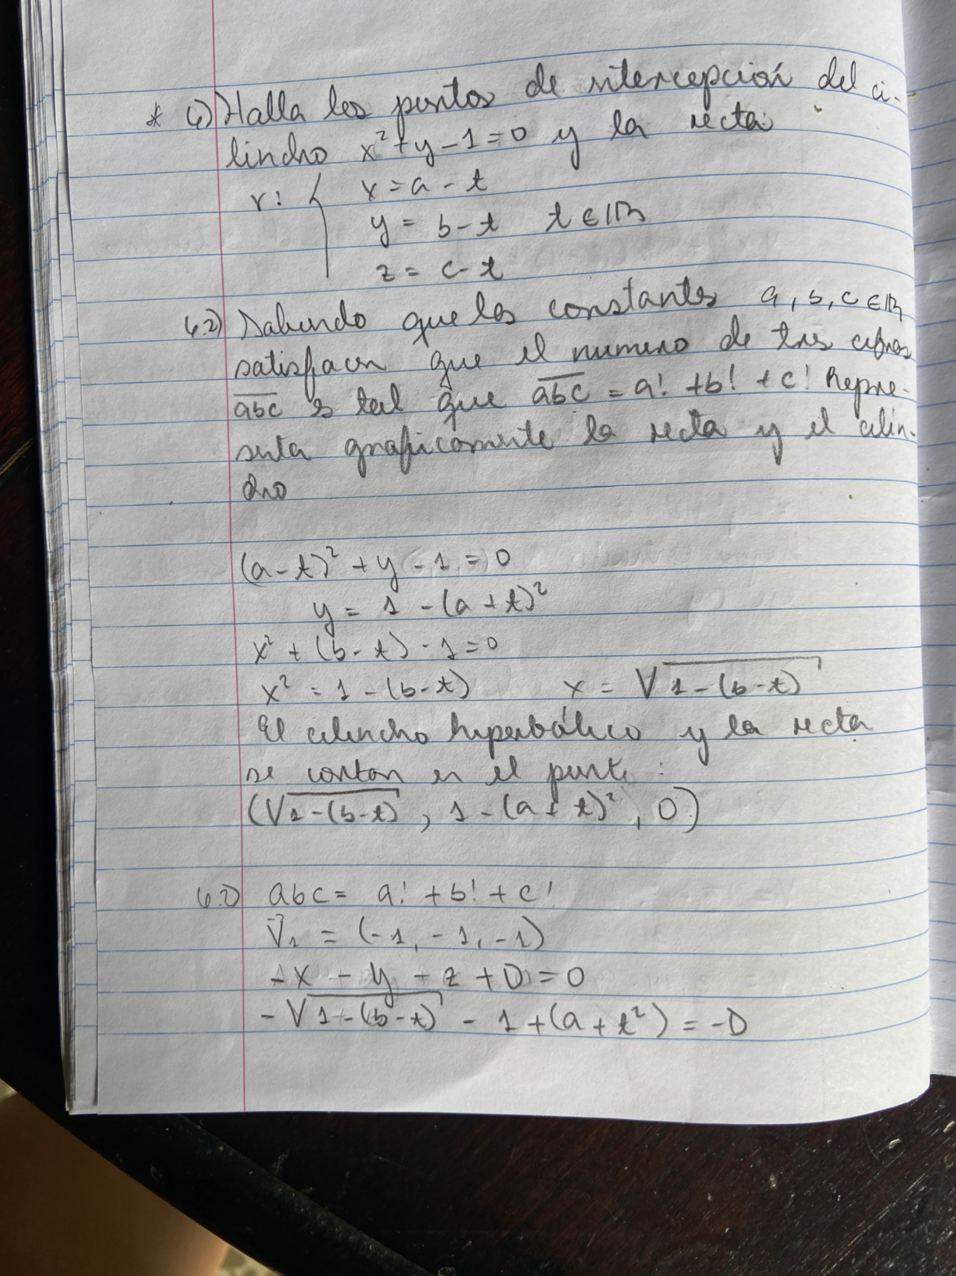 * 6) Halla los puntos de intercepción del ci-
lindro x² + y - 1 = 0 y la recta
r: { x = a - t
y = b - t t ∈ ℝ
z = c - t
6.2) Sabiendo que las constantes a, b, c ∈ ℝ
satisfacen que el numero de tres cifras
a̅b̅c̅ es tal que a̅b̅c̅ = a! + b! + c! Repre-
senta graficamente la recta y el cilin-
dro
(a - t)² + y - 1 = 0
y = 1 - (a + t)²
x² + (b - t) - 1 = 0
x² = 1 - (b - t) x = √(1 - (b - t))
El cilindro hiperbólico y la recta
se cortan en el punto:
(√(1 - (b - t)), 1 - (a + t)², 0)
6.2) abc = a! + b! + c!
v⃗₁ = (-1, -1, -1)
-x - y - z + D = 0
-√(1 - (b - t)) - 1 + (a + t²) = -D